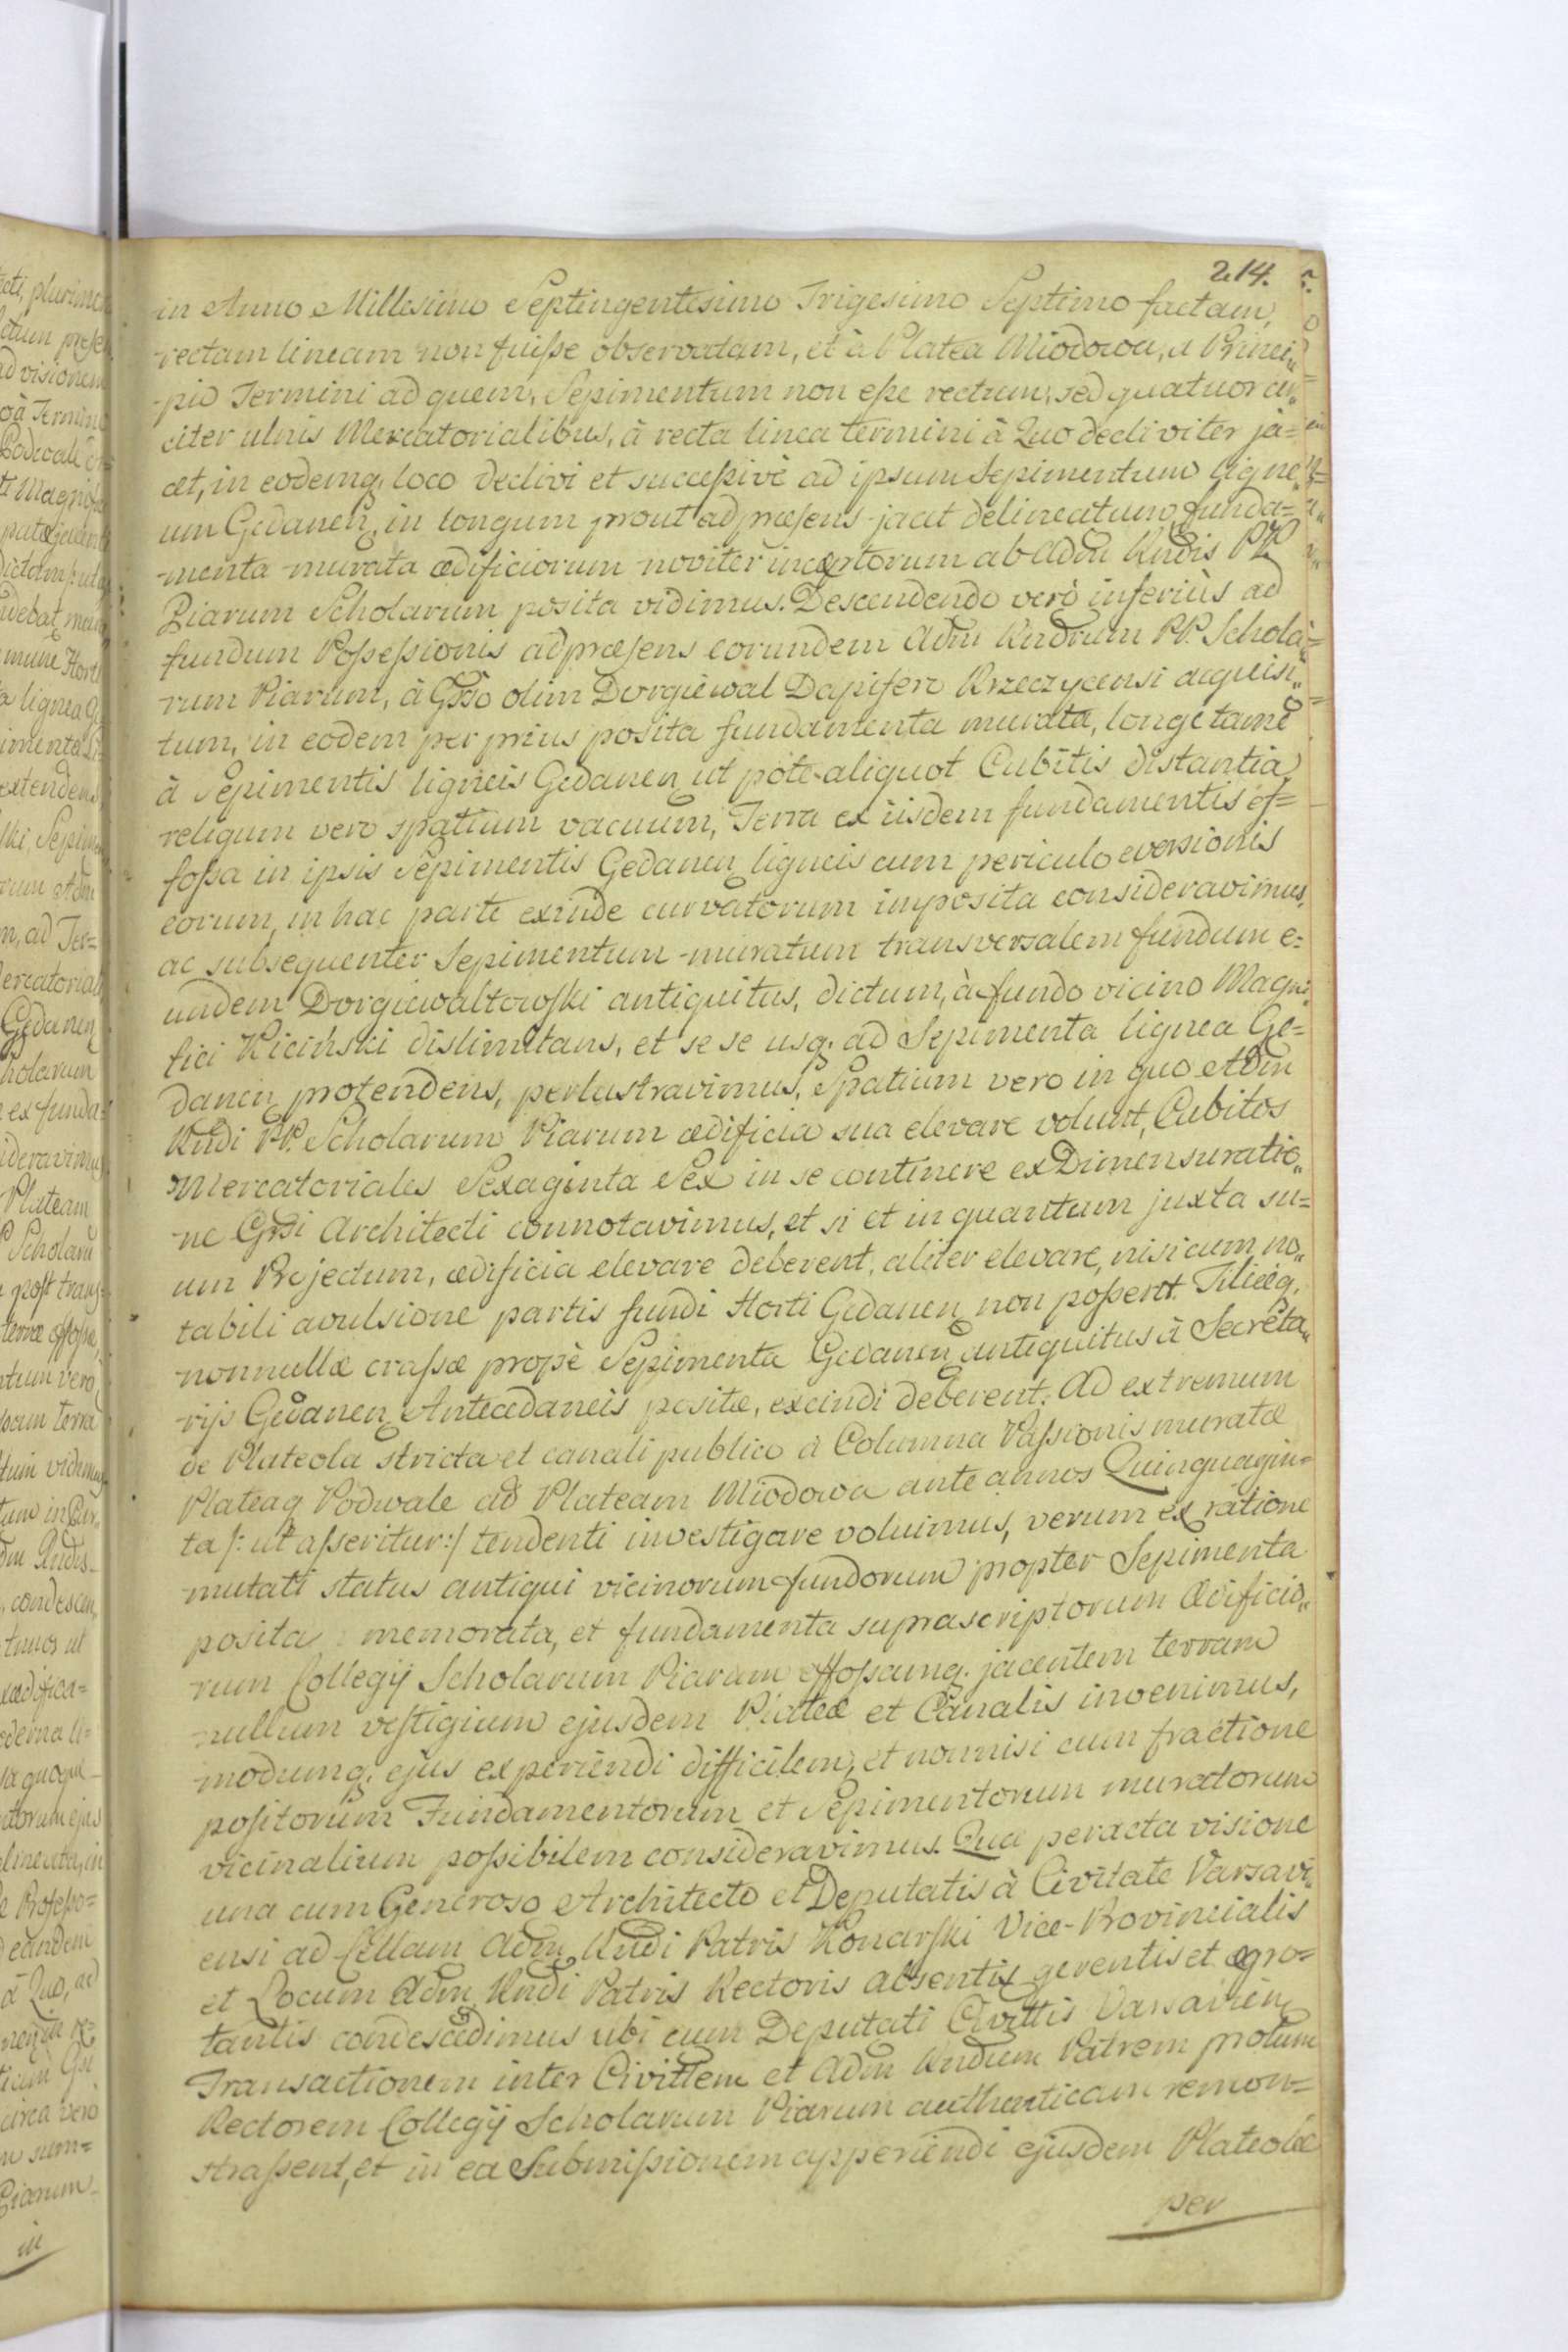 214.
in Anno Millesimo Septingentesimo Trigesimo Septimo factam,
rectam lineam non fuisse observatam, et à Platea Miodowa, a Princi„
pio Termini ad quem, Sepimentum non esse rectum, sed quatuor cir„
citer ulnis Mercatorialibus, à recta linea termini à Quo decliviter ja=
cet, in eodemq. loco declivi et successivè ad ipsum Sepimentum ligne„
um Gedanen, in longum prout ad præsens jacet delineatum, funda=
menta murata ædificiorum noviter incæptorum ab Adm Rndis PP.
Piarum Scholarum posita vidimus. Descendendo verò inferiùs ad
fundum Possessionis ad præsens eorundem Adm Rndrum PP. Schola=
rum Piarum, à Gsso olim Dorgiewal Dapifero Rzeczycensi acquisi„
tum, in eodem per prius posita fundamenta murata, longè tamē
à Sepimentis ligneis Gedanen ut pote aliquot Cubitis distantia,
reliquum vero spatium vacuum, Terra ex iisdem fundamentis ef=
fossa in ipsis Sepimentis Gedanen ligneis cum periculo eversionis
eorum, in hac parte exinde curvatorum imposita consideravimus,
ac subsequenter Sepimentum muratum transversalem fundum e=
undem Dorgiewaltowski antiquitus, dictum, à fundo vicino Magni„
fici Kiciński dislimitans, et se se usq. ad Sepimenta lignea Ge=
danen protendens, perlustravimus, Spatium vero in quo Adm
Rndi PP. Scholarum Piarum ædificia sua elevare volunt, Cubitos
Mercatoriales Sexaginta Sex in se continere ex Dimensuratio„
ne Gssi Architecti connotavimus, et si et in quantum juxta su=
um Projectum, ædificia elevare deberent, aliter elevare, nisi cum no„
tabili avulsione partis fundi Horti Gedanen non possent. Tiliæq.
nonnullæ crassæ propè Sepimenta Gedanen antiquitus à Secreta„
rijs Gedanen Antecedaneis positæ, excindi deberent. Ad extremum
de Plateola stricta et canali publico à Columna Passionis muratæ
Plateaq Podwale ad Plateam Miodowa ante annos Quinquagin=
ta /: ut asseritur :/ tendenti investigare voluimus, verum ex ratione
mutati status antiqui vicinorum fundorum propter Sepimenta
posita memorata, et fundamenta suprascriptorum Ædificio„
rum Collegij Scholarum Piarum effossamq. jacentem terram
nullum vestigium ejusdem Plateæ et Canalis invenimus,
modumq. ejus experiendi difficilem, et nonnisi cum fractione
positorum Fundamentorum et Sepimentorum muratorum
vicinalium possibilem consideravimus. Qua peracta visione
una cum Generoso Architecto et Deputatis à Civitate Varsavi„
ensi ad Cellam Adm Rndi Patris Konarski Vice-Provincialis
et Locum Adm Rndi Patris Rectoris absentis gerentis et ægro=
tantis condescedimus ubi cum Deputati Civittis Varsavien
Transactionem inter Civittem et Adm Rndum Patrem protunc
Rectorem Collegij Scholarum Piarum authenticam remon=
strassent, et in ea Submissionem apperiendi ejusdem Plateolæ
per